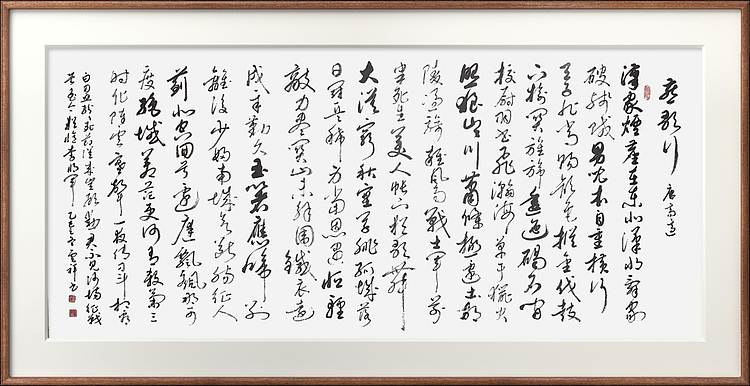 燕歌行 唐高適
漢家煙塵在東北漢將辭家
破殘賊男兒本自重橫行
天子非常賜顏色摐金伐鼓
下榆關旌旆逶迤碣石間
校尉羽書飛瀚海單于獵火
照狼山山川蕭條極邊土胡騎
憑陵雜風雨戰士軍前
半死生美人帳下猶歌舞
大漠窮秋塞草腓孤城落
日鬥兵稀身當恩遇恒輕
敵力盡關山未解圍鐵衣遠
戍辛勤久玉箸應啼別
離後少婦南城欲斷腸征人
薊北空回首邊庭飄飖那可
度絕域蒼茫更何有殺氣三
時作陣雲寒聲一夜傳刁斗相看
白刃血紛紛死節從來豈顧勳君不見沙場征戰
苦至今猶憶李將軍 雲祥書